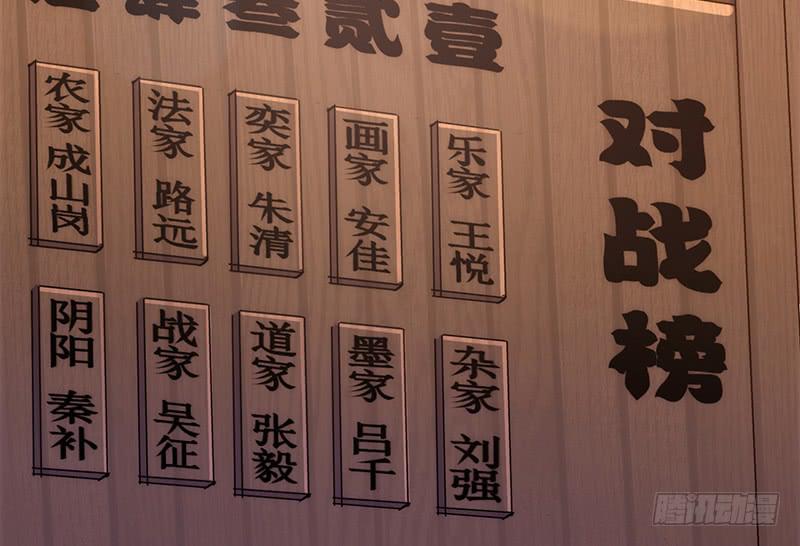 对战榜
壹贰叁肆伍
乐家 王悦
杂家 刘强
画家 安佳
墨家 吕千
奕家 朱清
道家 张毅
法家 路远
战家 吴征
农家 成山岗
阴阳 秦补
腾讯动漫